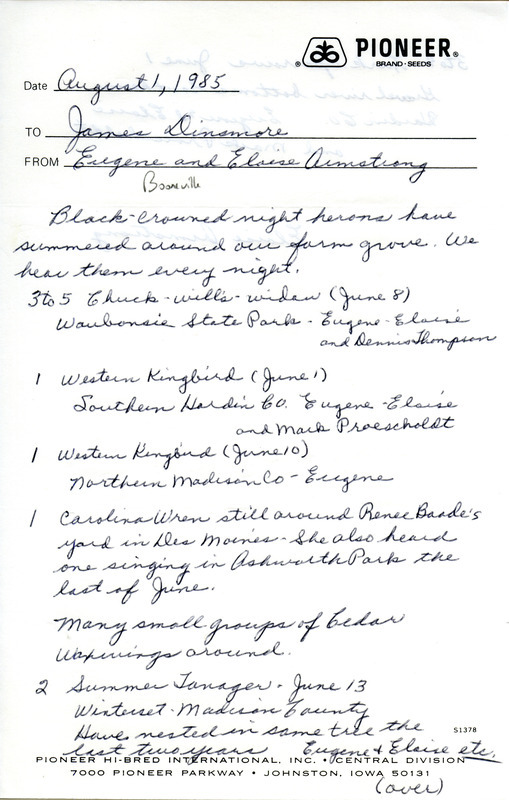 PIONEER®
BRAND • SEEDS
Date August 1, 1985
TO James Dinsmore
FROM Eugene and Eloise Armstrong
Booneville
Black-crowned night herons have
summered around our farm grove. We
hear them every night.
3 to 5 Chuck-wills-widow (June 8)
Waubonsie State Park - Eugene - Eloise
and Dennis Thompson
1 Western Kingbird (June 1)
Southern Hardin Co. Eugene - Eloise
and Mark Proescholdt
1 Western Kingbird (June 10)
Northern Madison Co - Eugene
1 Carolina Wren still around Renee Baade's
yard in Des Moines - She also heard
one singing in Ashworth Park the
last of June.
Many small groups of Cedar
Waxwings around.
2 Summer Tanager - June 13
Winterset - Madison County
Have nested in same tree the
last two years Eugene & Eloise etc.
S1378
PIONEER HI-BRED INTERNATIONAL, INC. • CENTRAL DIVISION
7000 PIONEER PARKWAY • JOHNSTON, IOWA 50131
(over)